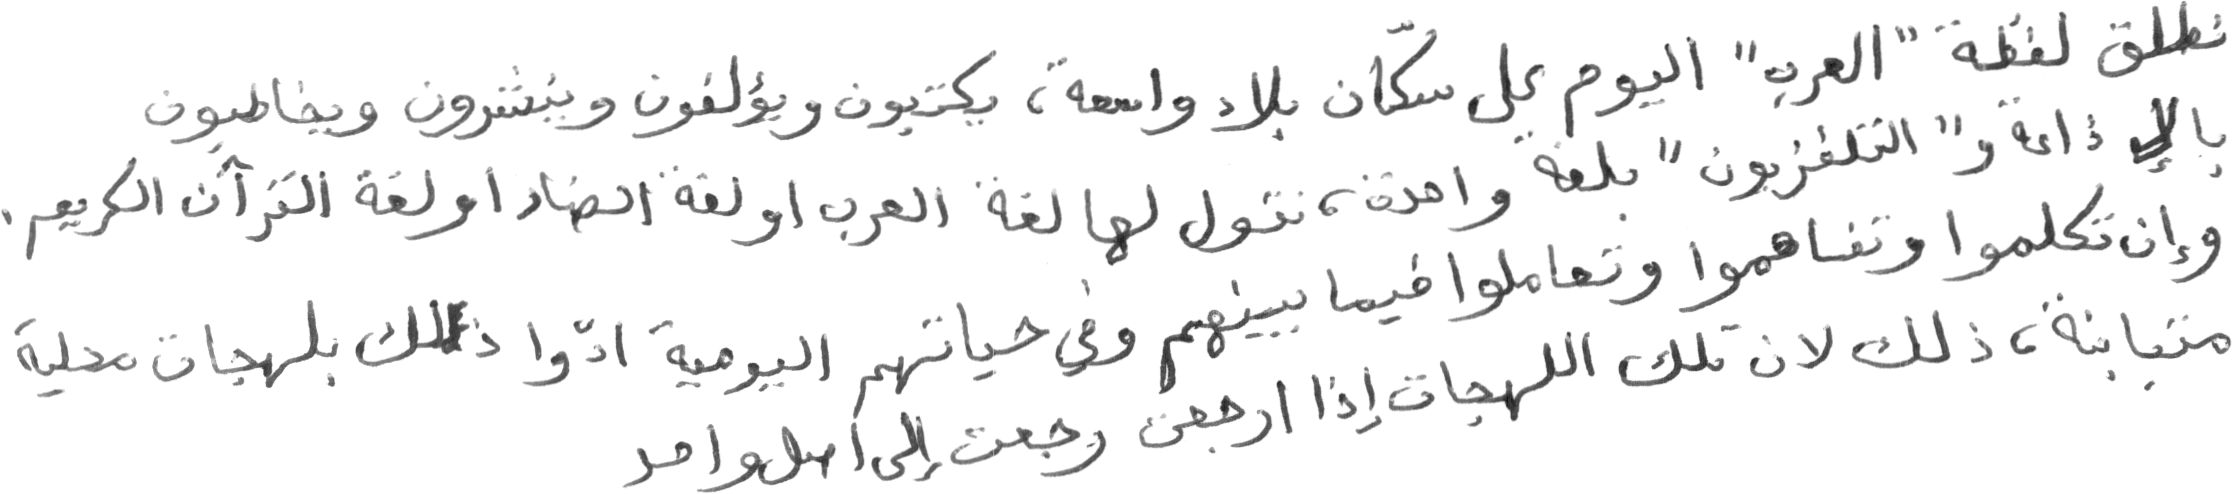 نطلق لفظة "العرب" اليوم على سكّان بلاد واسعة، يكتبون ويؤلفون وينشرون ويخاطبون
بالإذاعة و"التلفزيون" بلغة واحدة، نقول لها لغة العرب او لغة الضاد او لغة القرآن الكريم.
وإن تكلموا وتفاهموا وتعاملوا فيما بينهم وفي حياتهم اليومية ادّوا ذلك بلهجات محلية
متباينة، ذلك لان تلك اللهجات إذا ارجعت رجعت إلى اصل واحد